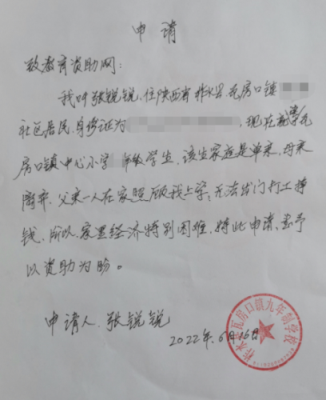 申请
致教育资助网：
我叫张锐锐，住陕西省柞水县瓦房口镇
社区居民，身份证为，现在就学瓦
房口镇中心小学学生，该生家庭是单亲，母亲
离弃，父亲一人在家照顾我上学，无法出门打工挣
钱，所以家里经济特别困难，特此申请，望予
以资助为盼。
申请人：张锐锐
2022年6月16日
柞水县瓦房口镇九年制学校